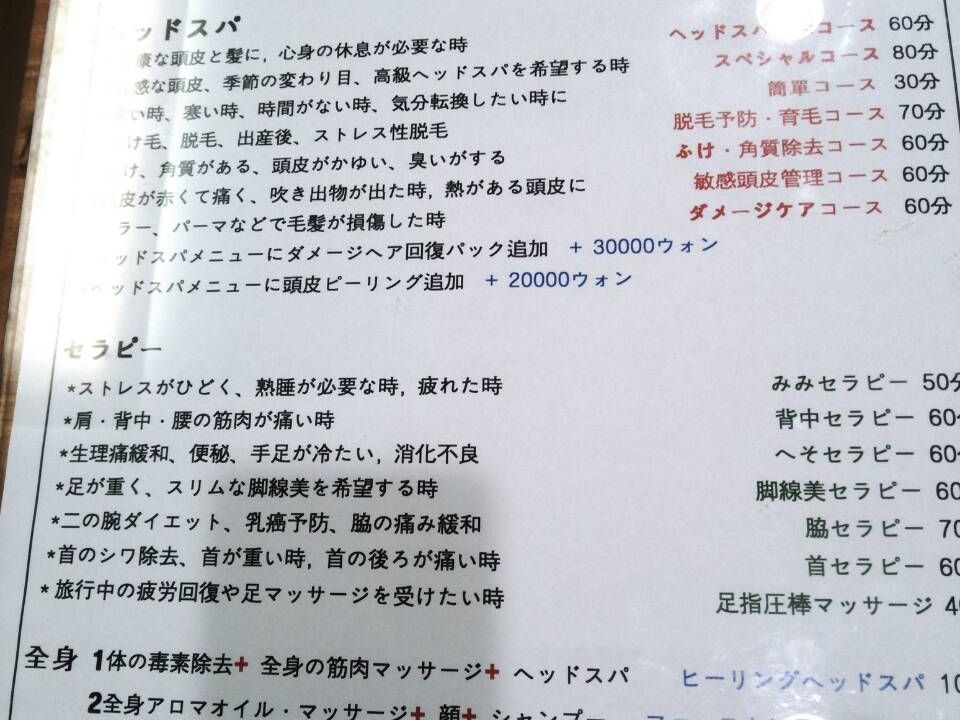 ッドスパ
康な頭皮と髪に, 心身の休息が必要な時 ヘッドスパ コース 60分
感な頭皮、季節の変わり目、高級ヘッドスパを希望する時 スペシャルコース 80分
い時、寒い時、時間がない時、気分転換したい時に 簡單コース 30分
け毛、脱毛、出産後、ストレス性脱毛 脱毛予防・育毛コース 70分
け、角質がある、頭皮がかゆい、臭いがする ふけ・角質除去コース 60分
皮が赤くて痛く、吹き出物が出た時, 熱がある頭皮に 敏感頭皮管理コース 60分
ラー、パーマなどで毛髪が損傷した時 ダメージケアコース 60分
ッドスパメニューにダメージヘア回復パック追加 + 30000ウォン
ヘッドスパメニューに頭皮ピーリング追加 + 20000ウォン
セラピー
*ストレスがひどく、熟睡が必要な時, 疲れた時 みみセラピー 50分
*肩・背中・腰の筋肉が痛い時 背中セラピー 60
*生理痛緩和、便秘、手足が冷たい, 消化不良 へそセラピー 60
*足が重く、スリムな脚線美を希望する時 脚線美セラピー 60
*二の腕ダイエット、乳癌予防、脇の痛み緩和 脇セラピー 70
*首のシワ除去、首が重い時, 首の後ろが痛い時 首セラピー 60
*旅行中の疲労回復や足マッサージを受けたい時 足指圧棒マッサージ
全身 1体の毒素除去+ 全身の筋肉マッサージ+ ヘッドスパ ヒーリングヘッドスパ 10
2全身アロマオイル・マッサージ+ 顔+ シャンプー